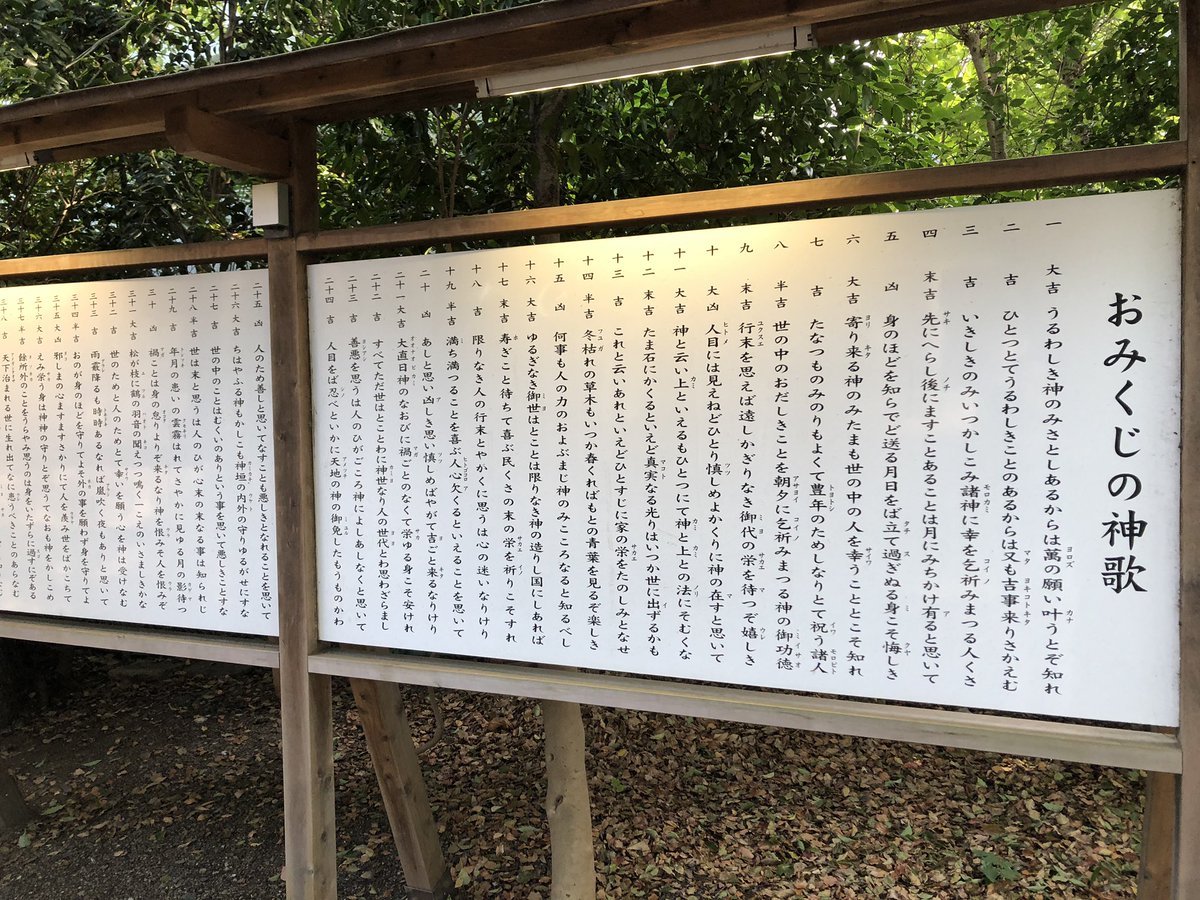 おみくじの神歌
一 大吉 うるわしき神のみさとしあるからは萬の願い叶うとぞ知れ
二 吉 ひとつとてうるわしきことのあるからは又も吉事来りさかえむ
三 吉 いきしきのみいつかしこみ諸神に幸を乞祈みまつる人くさ
四 末吉 先にへらし後にますことあることは月にみちかけ有ると思いて
五 凶 身のほどを知らでど送る月日をば立て過ぎぬる身こそ悔しき
六 大吉 寄り来る神のみたまも世の中の人を幸うこととこそ知れ
七 吉 たなつものみのりもよくて豊年のためしなりとて祝う諸人
八 半吉 世の中のおだしきことを朝夕に乞祈みまつる神の御功徳
九 末吉 行末を思えば遠しかぎりなき御代の栄を待つぞ嬉しき
十 大凶 人目には見えねどひとり慎しめよかくりに神の在すと思いて
十一 大吉 神と云い上といえるもひとつにて神と上との法にそむくな
十二 末吉 たま石にかくるといえど真実なる光りはいつか世に出ずるかも
十三 吉 これと云いあれといえどひとすじに家の栄をたのしみとなせ
十四 半吉 冬枯れの草木もいつか春くればもとの青葉を見るぞ楽しき
十五 凶 何事も人の力のおよぶまじ神のみこころなると知るべし
十六 大吉 ゆるぎなき御世はとことは限りなき神の造りし国にしあれば
十七 末吉 寿ぎこと待ちて喜ぶ民くさの末の栄を祈りこそすれ
十八 吉 限りなき人の行末とやかくに思うは心の迷いなりけり
十九 半吉 満ち満つることを喜ぶ人心欠くるといえることを思いて
二十 凶 あしと思い凶しき思い慎しめばやがて吉ごと来るなりけり
二十一 大吉 大直日神のなおびに禍ごとのなくて栄ゆる身こそ安けれ
二十二 吉 すべてただ世はとことわに神世なり人の世代とわ思わざらまし
二十三 吉 善悪を思うは人のひがごころ神によしあしなくと思いて
二十四 凶 人目をば忍べといかに天地の神の御免したもうものかわ
二十五 凶 人のため善しと思いてなすことも悪しきとなれることを思いて
二十六 大吉 ちはやふる神もかしこも神垣の内外の守りゆるがせにすな
二十七 吉 世の中のことはことはむくいのありという事を思いて悪しきことすな
二十八 半吉 世は末と思うは人のひが心末の末なる事は知られじ
二十九 吉 年月の患いの雲霧はれてさやかに見ゆる月の影待つ
三十 凶 禍ごとは身の怠りよりぞ来るなり神を恨みそ人を恨みぞ
三十一 大吉 松が枝に鶴の羽音の聞えつつ鳴く一こえのいさましきかな
三十二 吉 世のためと人のためとて幸いを願う心を神は受けなむ
三十三 吉 雨霰降るも時時あるなれば嵐吹く夜もありと思いて
三十四 半吉 おのが身のほどを守りてよそ外の事を願わず身を守りてよ
三十五 大凶 邪しまの心ますますさかりにて人を羨み世をばかこちて
三十六 大吉 えみ栄う身は神神の守りとぞ思うてなおも神をかしこめ
三十七 半吉 余所外のことをうらやみ思うのは身をいたずらに過すにぞある
三十八 吉 天下治まれる世に生れ出てなに患うべきことのあらなむ